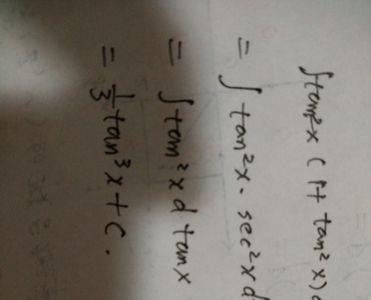 ∫tan²x (1+tan²x)d
= ∫tan²x·sec²xd
= ∫tan²x d tanx
= 1/3 tan³x + C.